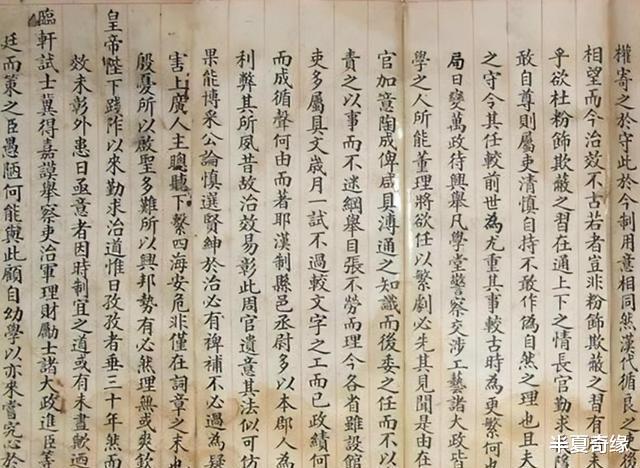 權寄之於守此於今制用意相同然漢代循良之
相望而今治效不古若者豈非粉飾欺蔽之習有
乎欲杜粉飾欺蔽之習在通上下之情長官勤求
敢自尊則屬吏清慎自持不敢作偽自然之理也且夫
之守令其任較前世為尤重其事較古時為更繁何也
局日變萬政待興舉凡學堂警察交涉工藝諸大政皆
學之人所能董理將欲任以繁劇必先其見聞是由在
官加意陶成俾咸具溥通之知識而後委之任而不以
責之以事而不迷綱舉目張不勞而理今各省雖設館
吏多屬具文歲月一試不過較文字之工而已政績何
而成循聲何由而著耶漢制縣邑丞尉多以本郡人為
利弊其所夙昔故治效易彰此周官遺意其法似可仿
果能博采公論慎選賢紳於治必有裨補不必過為疑
害上廣人主聰聽下繫四海安危非僅在詞章之末也
殷憂所以啟聖多難所以興邦勢有必然理無或爽欽
皇帝陛下踐阼以來勤求治道惟日孜孜者垂三十年然而
效未彰外患日亟意者因時制宜之道或有未盡歟廼
臨軒試士冀得嘉謨舉察吏治軍理財勵士諸大政進臣等
廷而策之臣愚陋何能與此顧自幼學以亦來嘗究心於
半夏奇缘